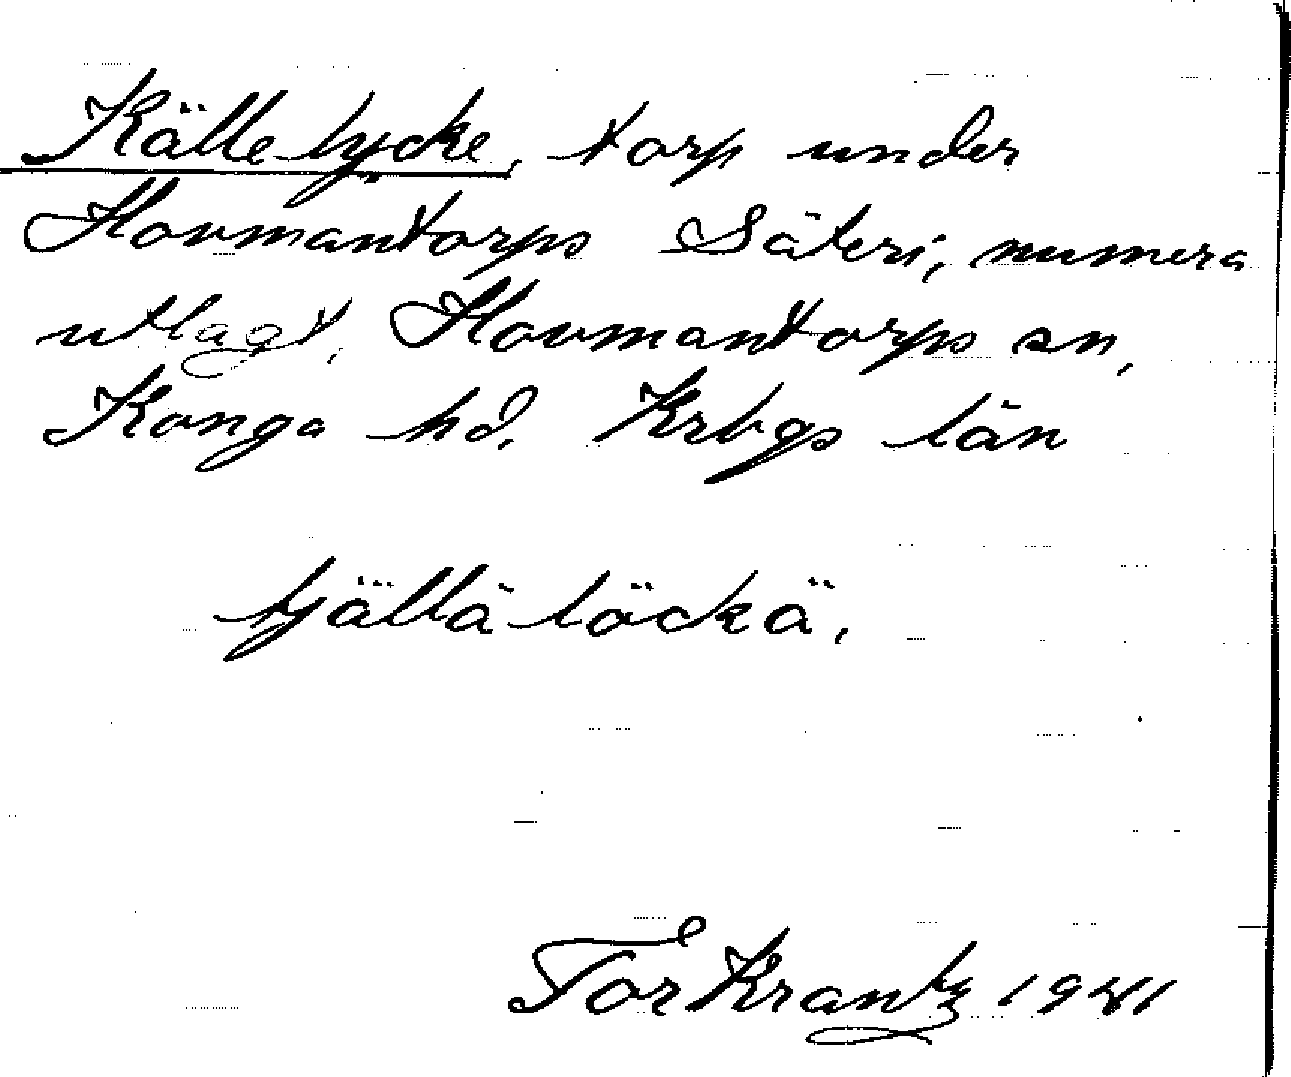 Källelycke, torp under
Hovmantorps Säteri, numera
utlagt, Hovmantorps sn,
Konga hd. Krbgs län
tjällä löckä,
Tor Krantz 1941